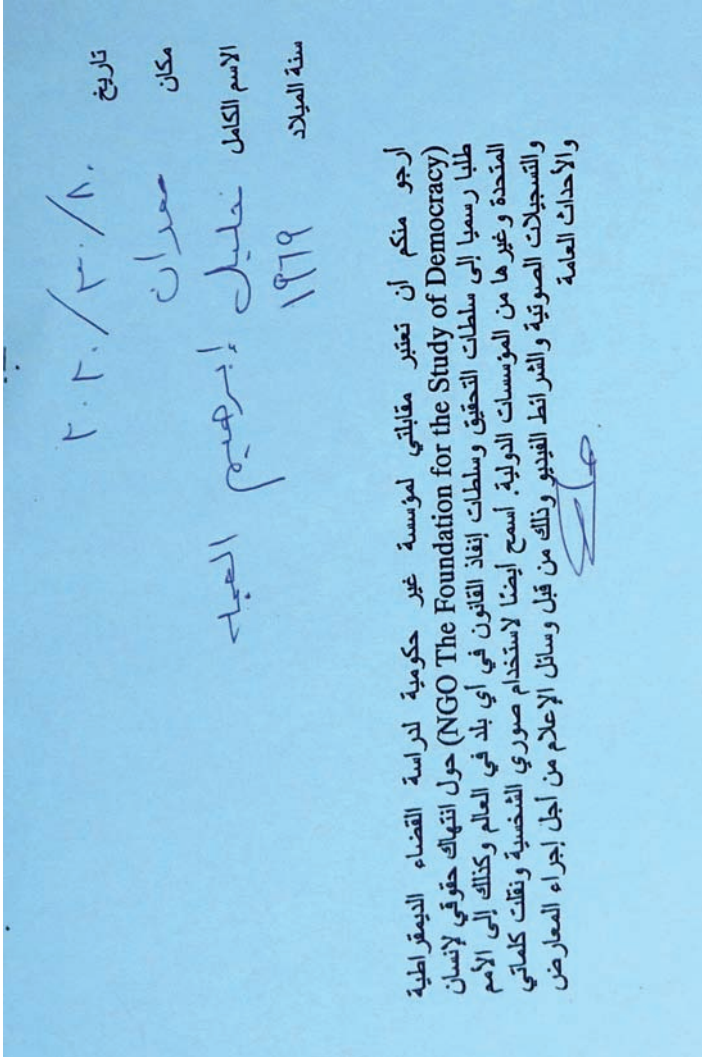 تاريخ ٢٠٢٠/٣٠/٨٠
مكان معدان
الاسم الكامل خليل إبرهيم العبد
سنة الميلاد ١٩٦٩
أرجو منكم أن تعتبر مقابلتي لمؤسسة غير حكومية لدراسة القضاء الديمقراطية
(NGO The Foundation for the Study of Democracy) حول انتهاك حقوقي لإنسان
طلبا رسميا إلى سلطات التحقيق وسلطات إنفاذ القانون في أي بلد في العالم وكذلك إلى الأمم
المتحدة وغيرها من المؤسسات الدولية. اسمح ايضنا لاستخدام صوري الشخسية ونقلت كلماتي
والتسجيلات الصوتية والشرائط الفيديو وذلك من قبل وسائل الإعلام من أجل إجراء المعارض
والأحداث العامة